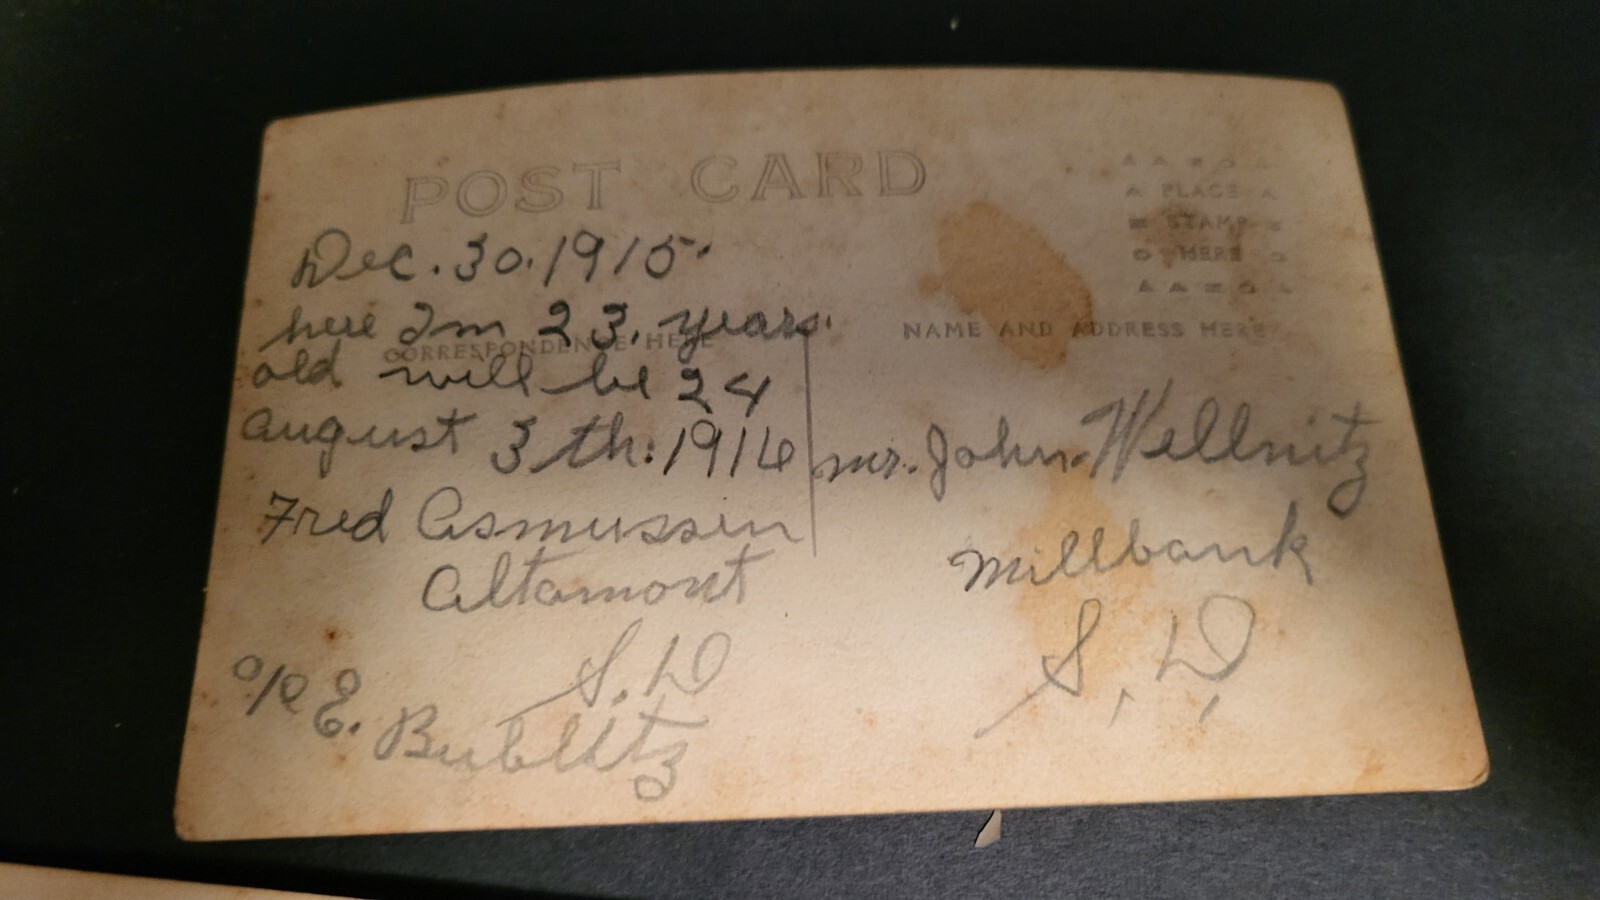 POST CARD
Dec. 30. 1915.
here Im 23. years.
CORRESPONDENCE HERE
old will be 24
august 3th: 1916
Fred Asmussen
Altamont
S. D
c/o E. Bublitz
PLACE
STAMP
HERE
NAME AND ADDRESS HERE
mr. John. Wellnitz
Millbank
S. D.